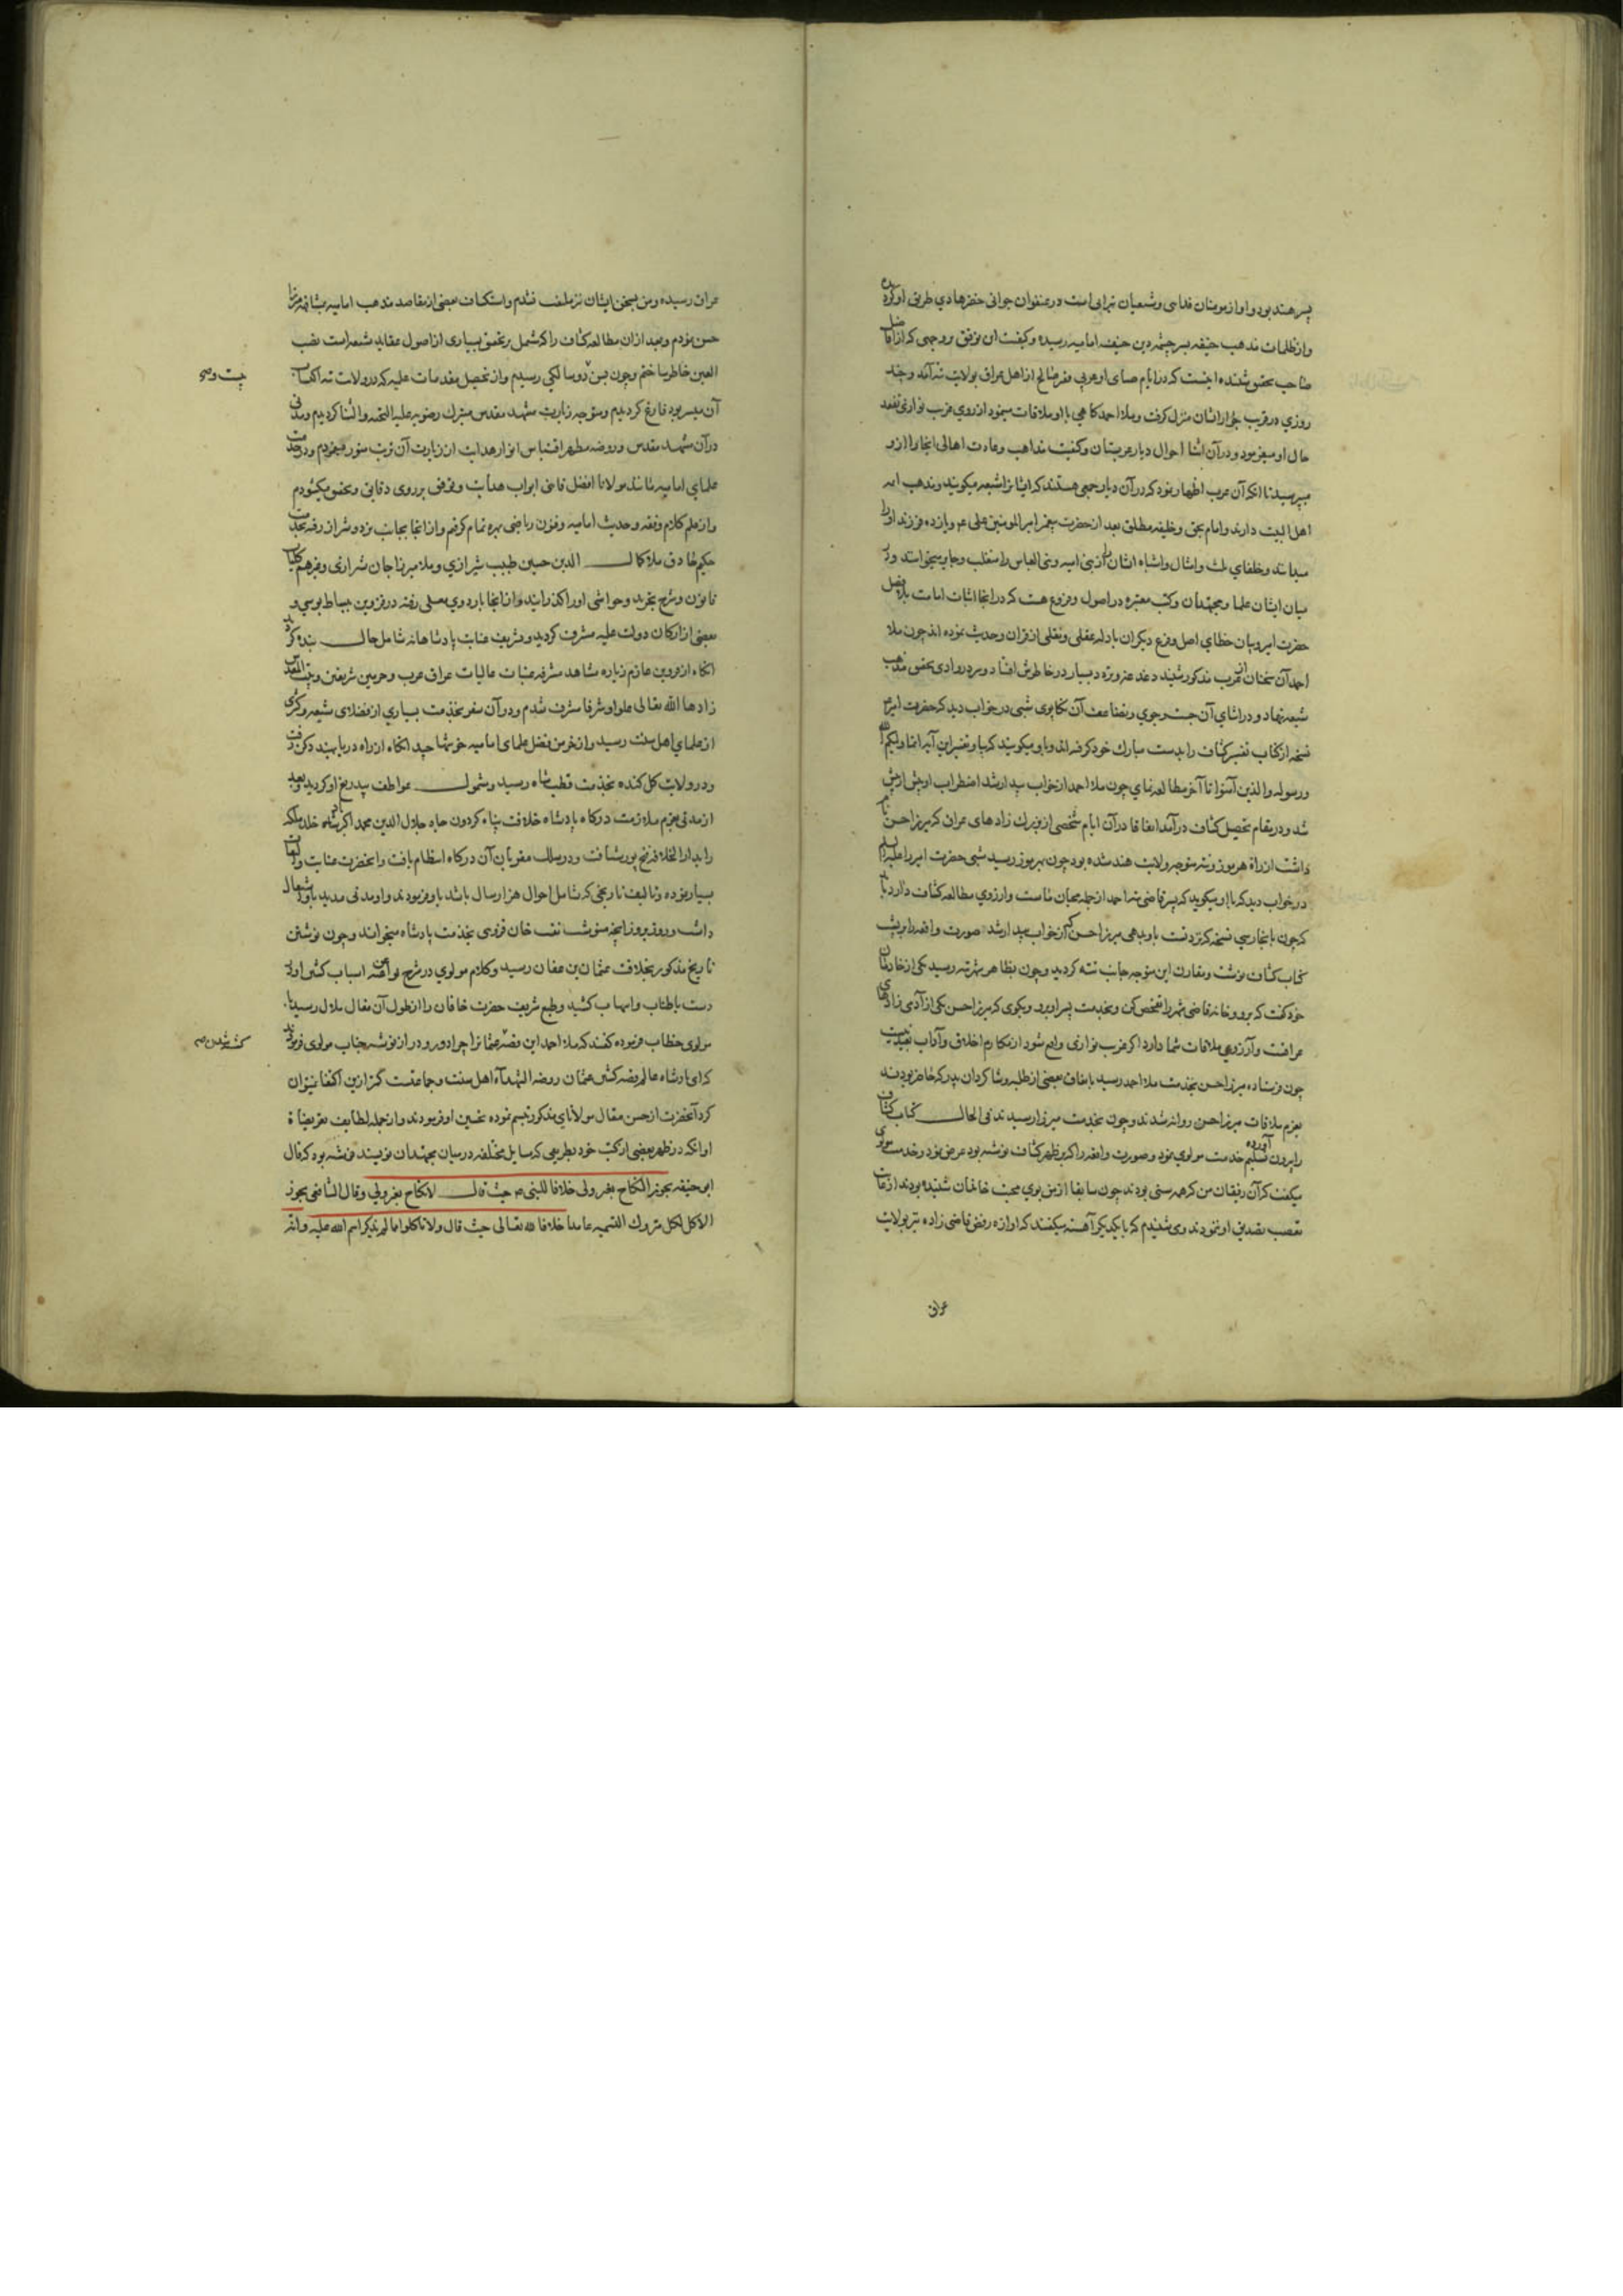 پسر هند بود و او از مومنان فدایی و شیعیان تبرایی است و در عنفوان جوانی خضر هادی طریق او گردیده
و از ظلمات مذهب حنیفه بسرچشمه دین حنیف امامیه رسیده و کیفیت آن توفیق بوجهی که از افاضل
صاحب تحقیق شنیده اینست که در ایام صبای او عربی فقیر صالح از اهل عراق بولایت تته آمد و چند
روزی در قرب جوار ایشان منزل گرفت و ملا احمد گاهی با او ملاقات مینمود از روی غریب نوازی تفقد
حال او میفرمود و در آن اثنا احوال دیار عربستان و کیفیت مذاهب و عادت اهالی آنجا را از و
میپرسید تا آنکه آن عرب اظهار نمود که در آن دیار جمعی هستند که ایشانرا شیعه میگویند و مذهب ائمه
اهل البیت دارند و امام بحق و خلیفه مطلق بعد از حضرت پیغمبر امیر المومنین علی عم و یازده فرزند او را
میدانند و خلفای ثلث و امثال و اشباه ایشان را از بنی امیه و بنی العباس را متغلب و جابر میخوانند و در
میان ایشان علما و مجتهدان و کتب معتبره در اصول و فروع هست که در آنجا اثبات امامت بلافصل
حضرت امیر و بیان خطای اصل و فرع دیگران بادله عقلی و نقلی از قران و حدیث نموده اند چون ملا
احمد آن سخنان از عرب مذکور شنید دغدغه و تردد بسیار در خاطرش افتاد و سر در وادی تحقیق مذهب
شیعه نهاد و در اثنای آن جست و جوی و تضاعیف آن تکاپوی شبی در خواب دید که حضرت امیر عم
نسخه از کتاب تفسیر کشاف را بدست مبارک خود گرفته اند و باو میگویند که بیا و تفسیر این آیه انما ولیکم الله
و رسوله و الذین آمنوا تا آخر مطالعه نمای چون ملا احمد از خواب بیدار شد اضطراب او بیش از پیش
شد و در مقام تحصیل کشاف درآمد اتفاقا در آن ایام شخصی از بزرک زادهای عراق که میرزا حسن نام
داشت از راه هرموز و تته متوجه ولایت هند شده بود چون بهرموز رسید شبی حضرت امیر را علیه السلم
در خواب دید که با او میگوید که پسر قاضی تته احمد از جمله محبان ماست و ارزوی مطالعه کشاف دارد باید
که چون بانجا رسی نسخه که نزد تست باو بدهی میرزا حسن که از خواب بیدار شد صورت واقعه را بپشت
کتاب کشاف نوشت و مقارن این متوجه جانب تته گردید و چون بظاهر شهر تته رسید یکی از خادمان
خود گفت که برو و خانه قاضی شهر را تفحص کن و بخدمت پسر او برو و بگوی که میرزا حسن یکی از آدمی زادهای
عراقست و آرزوی ملاقات شما دارد اگر غریب نوازی واقع شود از مکارم اخلاق و آداب بعید نیست
چون فرستاده میرزا حسن بخدمت ملا احمد رسید باتفاق بعضی از طلبه و شاکردان پدر که حاضر بودند
بعزم ملاقات میرزا حسن روانه شدند و چون بخدمت میرزا رسیدند فی الحال کتاب کشاف
را بیرون آورده تسلیم خدمت مولوی نمود و صورت واقعه را که بر ظهر کشاف نوشته بود عرض نمود و خدمت مولوی
میگفت که آن رفیقان من که همه سنی بودند چون سابقا از من بوی محبت خاندان شنیده بودند از غایت
تعصب تصدیق او ننمودند و می شنیدم که با یکدیگر آهسته میگفتند که اوازه رفض قاضی زاده تیز بولایت
عراق
عراق رسیده و من بسخن ایشان نیز ملتفت نشدم و استکشاف بعضی از مقاصد مذهب امامیه بمشافهه میرزا
حسن نمودم و بعد از ان مطالعه کشاف را که مشتمل بر تحقیق بسیاری از اصول عقاید شیعه است نصب
العین خاطر ساختم و چون بسن دو سالکی رسیدم و از تحصیل مقدمات علیه که در ولایت تته اکتساب
آن میسر بود فارغ گردیدم و متوجه زیارت مشهد مقدس متبرک رضویه علیه التحیه و الثنا گردیدم و مدتی
در آن مشهد مقدس و روضه مطهر اقتباس انوار هدایت از زیارت آن تربت منور مینمودم و در خدمت
علمای امامیه مانند مولانا افضل قاضی ابواب هدایت و توفیق بر روی دقایق و تحقیق میکشودم
و از علم کلام و فقه و حدیث امامیه و فنون ریاضی بهره تمام گرفتم و از انجا بجانب یزد و شیراز رفته بخدمت
حکیم حاذق ملا کمال الدین حسین طبیب شیرازی و ملا میرزا جان شیرازی و غیرهم کلیات
قانون و شرح تجرید و حواشی او را گذرانید و از انجا باردوی معلی رفته در قزوین ببساط بوسی و
بعضی از ارکان دولت علیه مشرف گردید و شریف عنایت پادشاهانه شامل حال بنده گردید
انکاه از قزوین عازم زیاره مشاهد مشرفه عتبات عالیات عراق عرب و حرمین شریفین و بیت المقدس
زادها الله تعالی علوا و شرفا مشرف شدم و در آن سفر بخدمت بسیاری از فضلای شیعه و کثیری
از علمای اهل سنت رسید و از خرمن فضل علمای امامیه خوشها چید انکاه از راه دریا بهند دکن رفت
و در ولایت کل کنده بخدمت قطب شاه رسید و مشمول عواطف بیدریغ او گردید و بعد
از مدتی بعزم ملازمت درگاه پادشاه خلافت پناه کردون جاه جلال الدین محمد اکبر پادشاه خلد ملکه
را بدار الخلافه فتح پور شتافت و در سلک مقربان آن درگاه انتظام یافت و انحضرت عنایت و التفات
بسیار نموده و تالیف تاریخی که شامل احوال هزار سال باشد باو فرمودند و او مدتی مدید باو اشتغال
داشت و روز بروز آنچه مینوشت نقیب خان قزوینی بخدمت پادشاه میخواند و چون نوشتن
تاریخ مذکور بخلافت عثمان بن عفان رسید و کلام مولوی در شرح قصه اسباب کشتن او از
دست باطناب و اسهاب کشید و طبع شریف حضرت خاقان را از طول آن مقال ملال رسید تا
مولوی خطاب فرموده گفتند که ملا احمد این قصه عثمانرا چرا دور و دراز نوشته جناب مولوی فرمودند
که ای پادشاه عالم قصه کشتن عثمان روضه الشهداء اهل سنت و جماعتست کمتر ازین اکتفا نمیتوان
کرد آنحضرت از حسن مقال مولانای مذکور تبسم نموده تحسین او فرمودند و از جمله لطایف تعریضات
او آنکه در ظهر بعضی از کتب خود بطریقی که مسایل مختلفه در میان مجتهدان نویسند نوشته بود که قال
ابو حنیفه یجوز النکاح بغیر ولی خلافا للنبی ص حیث قال لا نکاح بغیر ولی و قال الشافعی یجوز
الاکل لکل متروک التسمیه عامدا خلافا لله تعالی حیث قال و لا تاکلوا مما لم یذکر اسم الله علیه و انه
بیست و
کشته شدن